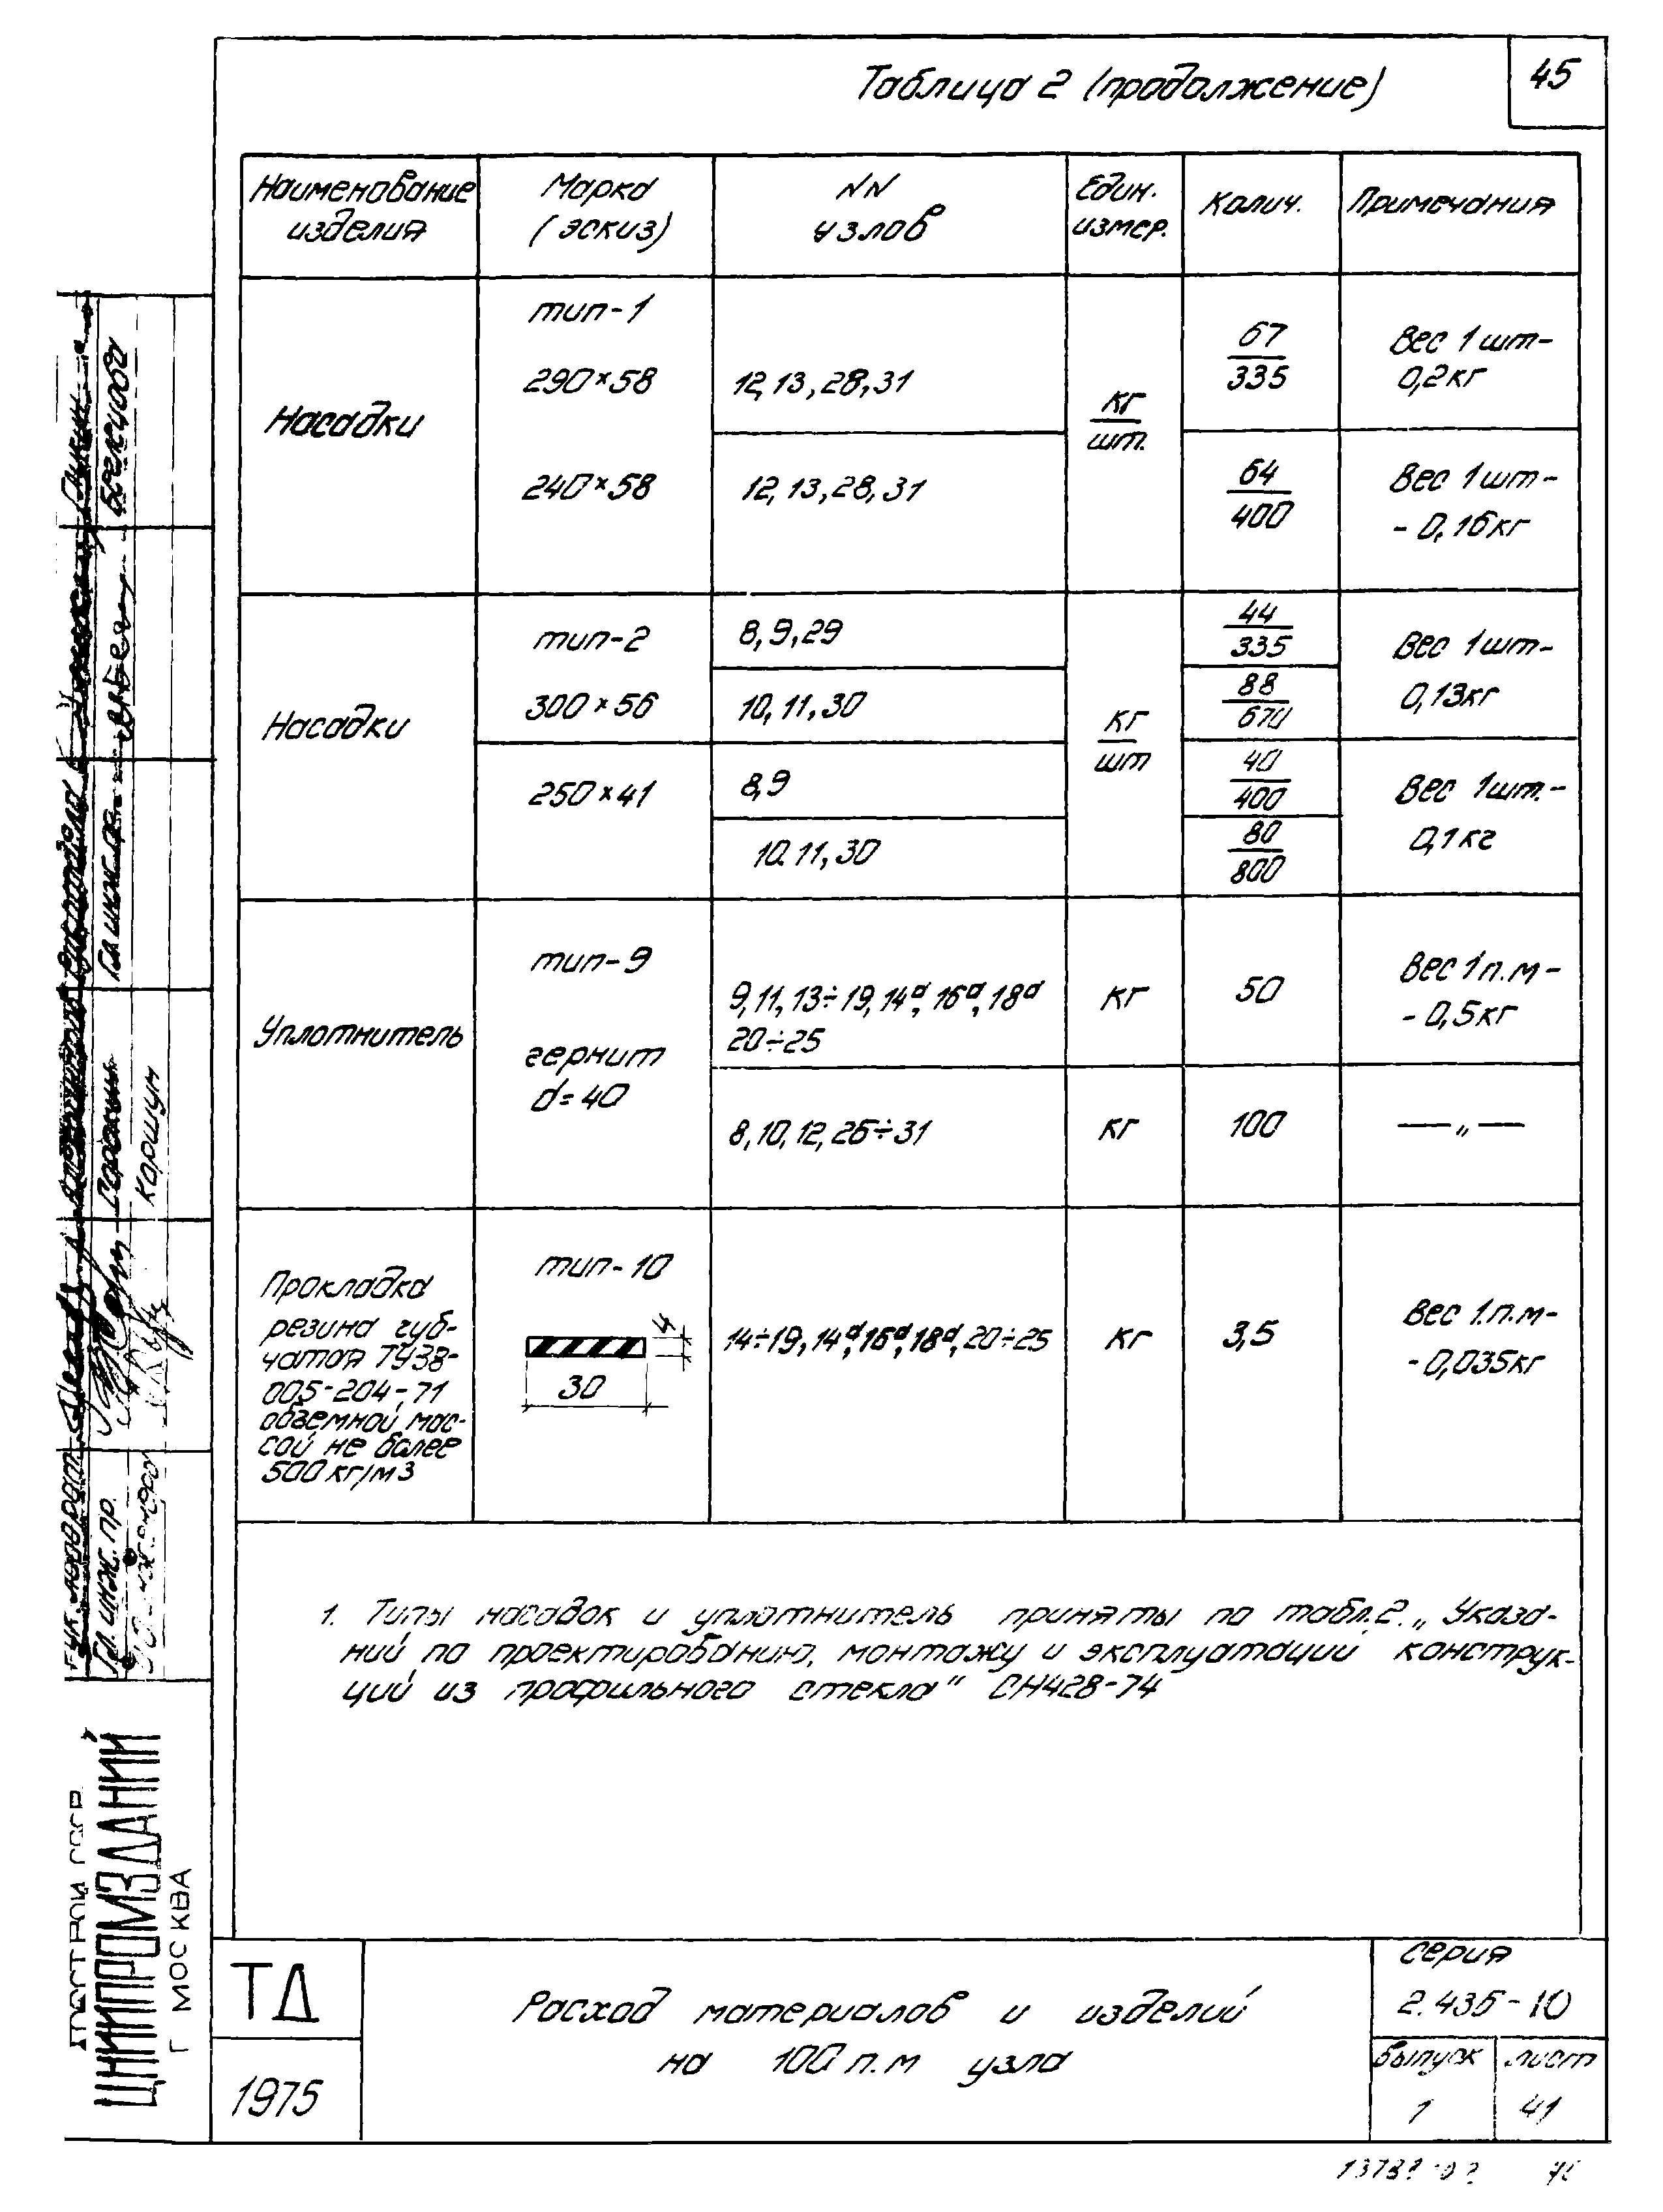 45
Таблица 2 (продолжение)
Наименование
изделия
Марка
(эскиз)
NN
узлов
Един.
измер.
Колич.
Примечания
Насадки
тип-1
290×58
12,13,28,31
кг
шт.
67
335
Вес 1 шт-
0,2кг
240×58
12,13,28,31
64
400
Вес 1 шт-
- 0,16кг
Насадки
тип-2
300×56
8,9,29
кг
шт
44
335
Вес 1 шт-
0,13кг
10,11,30
88
670
250×41
8,9
40
400
Вес 1шт.-
0,1кг
10.11,30
80
800
Уплотнитель
тип-9
гернит
d=40
9,11,13÷19,14а,16а,18а
20÷25
кг
50
Вес 1п.м-
- 0,5кг
8,10,12,26÷31
кг
100
— „ —
Прокладка
резина губ-
чатая ТУ38-
005-204-71
объемной мас-
сой не более
500кг/м3
тип-10
4
30
14÷19,14а,16а,18а,20÷25
кг
3,5
Вес 1.п.м-
- 0,035кг
1. Типы насадок и уплотнитель приняты по табл.2 „Указа-
ний по проектированию, монтажу и эксплуатации конструк-
ций из профильного стекла" СН428-74
ТД
1975
Расход материалов и изделий
на 100п.м узла
серия
2.436-10
выпуск
1
лист
41
ЦНИИПРОМЗДАНИЙ
Г МОСКВА
Гл. инж. пр.
Коршун